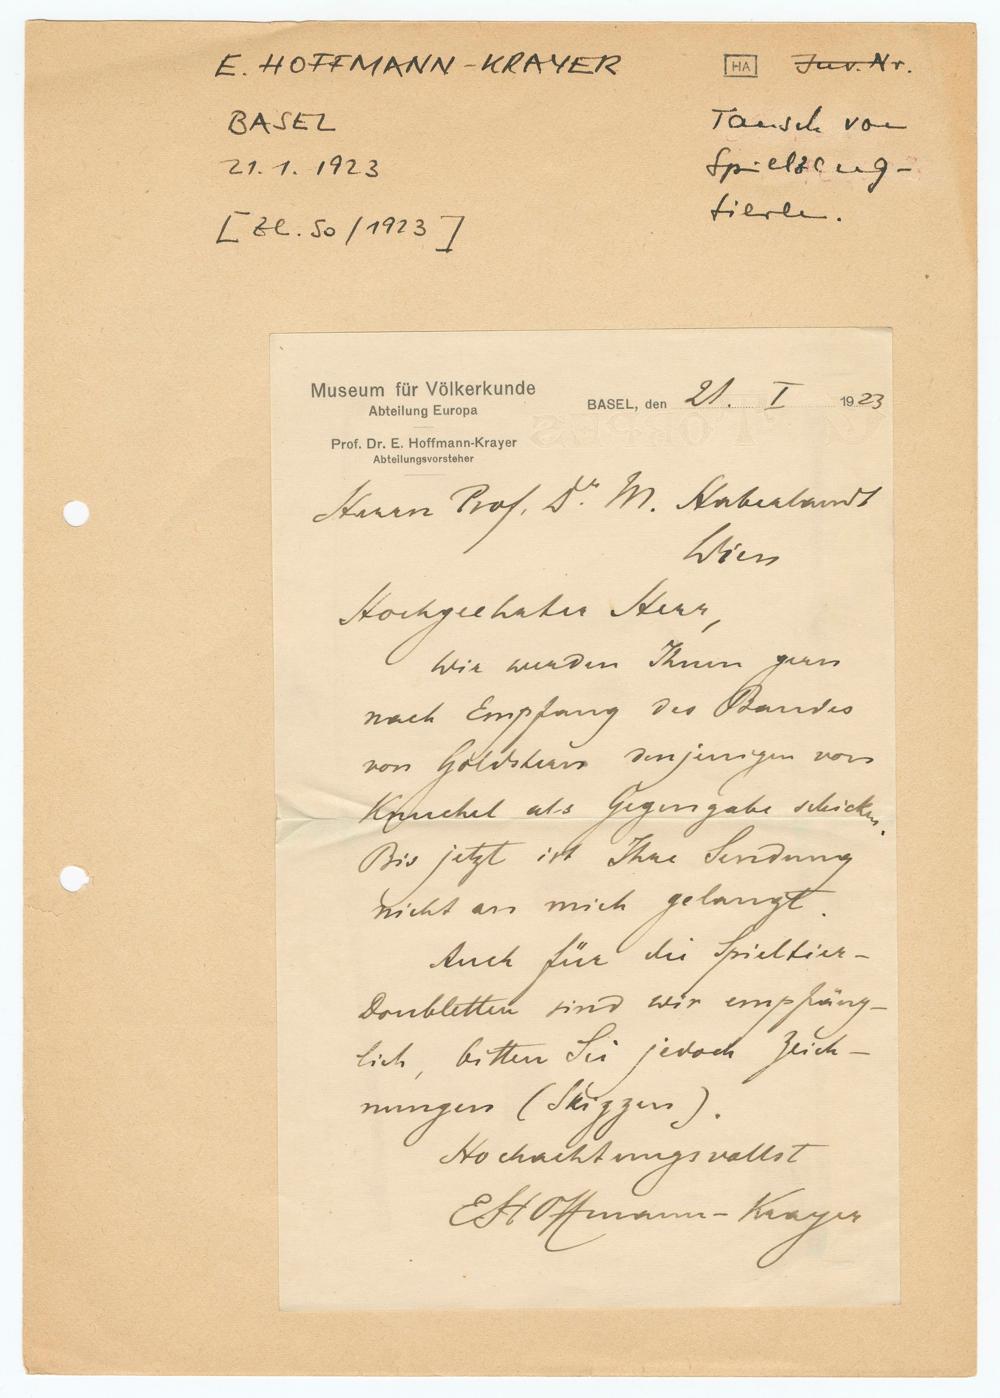 E. HOFFMANN-KRAYER
HA
Inv. Nr.
BASEL
21. 1. 1923
[Zl. 50/1923]
Tausch von
Spielzeug-
tieren.
Museum für Völkerkunde
Abteilung Europa
Prof. Dr. E. Hoffmann-Krayer
Abteilungsvorsteher
BASEL, den 21. I 1923
Herrn Prof. Dr. M. Haberlandt
Wien
Hochgeehrter Herr,
Wir werden Ihnen gern
nach Empfang des Bandes
von Goldstern denjenigen von
Knuchel als Gegengabe schicken.
Bis jetzt ist Ihre Sendung
nicht an mich gelangt.
Auch für die Spieltier-
Doubletten sind wir empfäng-
lich, bitten Sie jedoch Zeich-
nungen (Skizzen).
Hochachtungsvollst
EHoffmann-Krayer